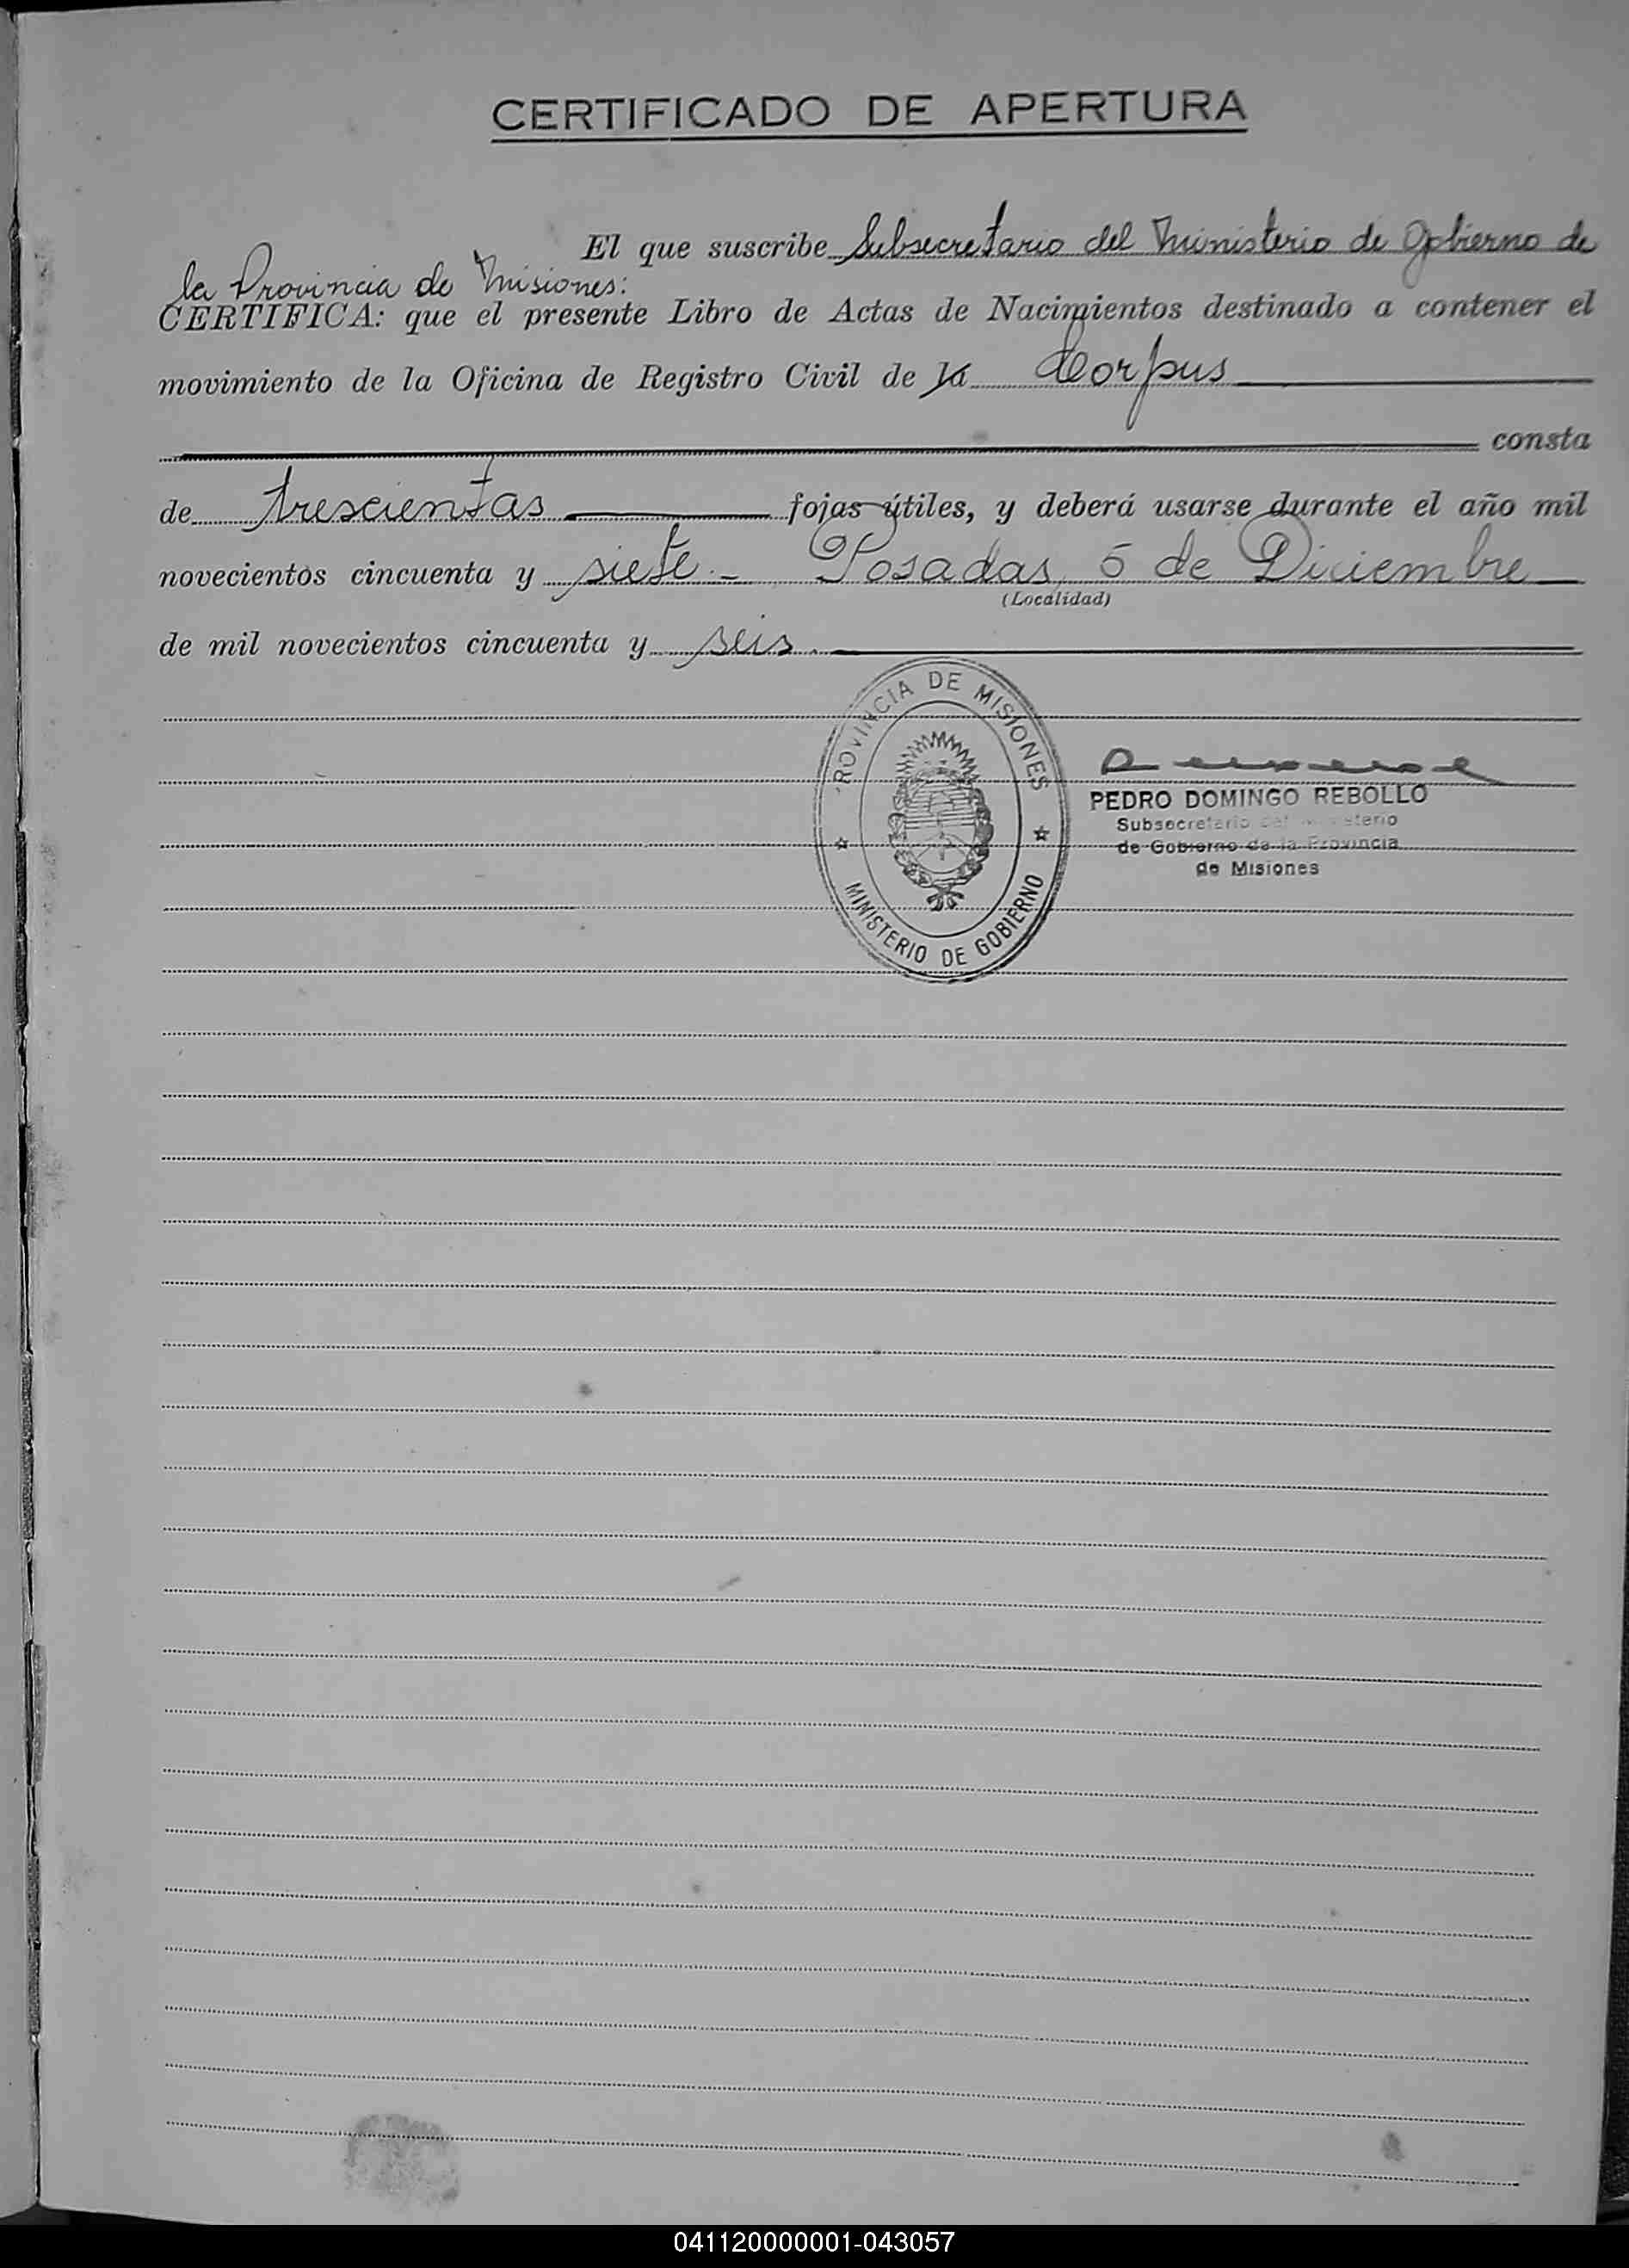 CERTIFICADO DE APERTURA
El que suscribe Subsecretario del Ministerio de Gobierno de
la Provincia de Misiones:
CERTIFICA: que el presente Libro de Actas de Nacimientos destinado a contener el
movimiento de la Oficina de Registro Civil de la Corpus
consta
de trescientas fojas útiles, y deberá usarse durante el año mil
novecientos cincuenta y siete.- Posadas, 5 de Diciembre
(Localidad)
de mil novecientos cincuenta y seis.
PROVINCIA DE MISIONES
MINISTERIO DE GOBIERNO
PEDRO DOMINGO REBOLLO
Subsecretario del Ministerio
de Gobierno de la Provincia
de Misiones
041120000001-043057